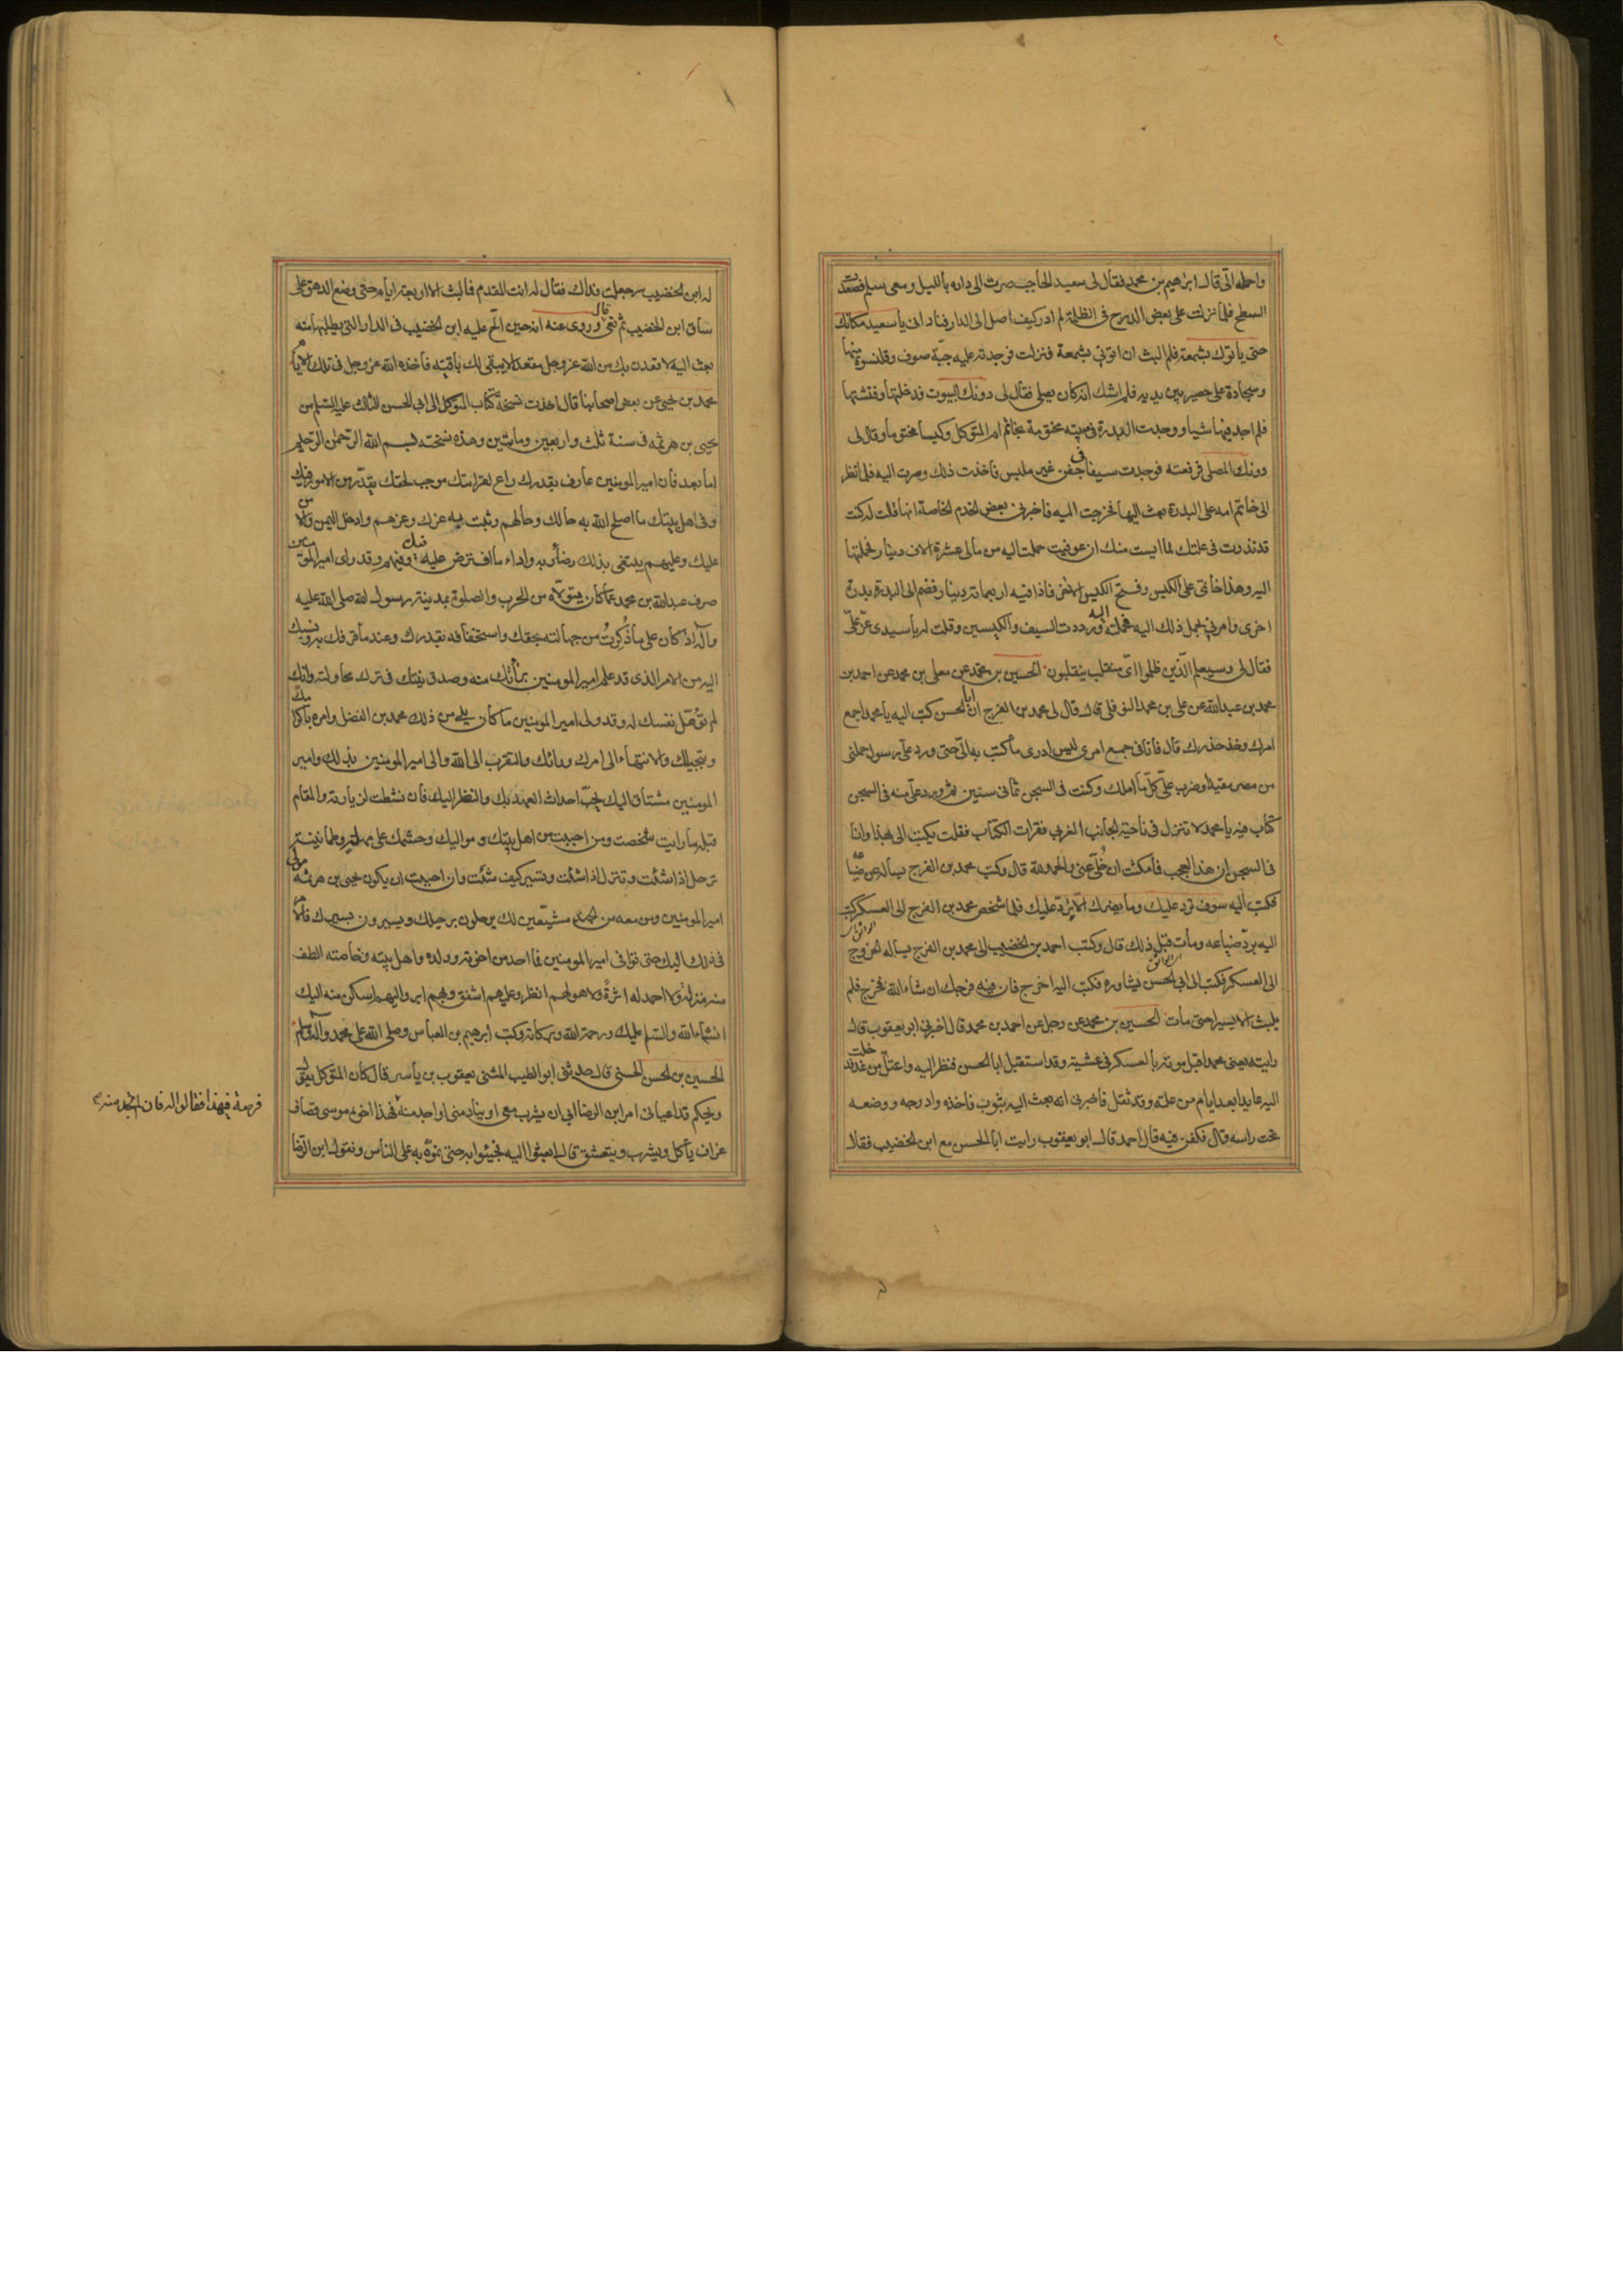 واحمله الىّ قال ابرٰهيم بن محمد فقال لى سعيد الحاجب صرت الى داره بالليل ومعى سلم فصعدت
السطح فلما نزلت على بعض الدرج فى الظلمة لم ادر كيف اصل الى الدار فنادانى يا سعيد مكانك
حتى ياتوك بشمعة فلم البث ان اتونى بشمعة فنزلت فوجدته عليه جبّة صوف وقلنسوة منها
وسجادة على حصير بين يديه فلم اشك انه كان يصلى فقال لى دونك البيوت فدخلتها وفتشتها
فلم اجد فيها شيا ووجدت البدرة فى بيته مختومة بخاتم ام المتوكل وكيسا مختوما وقال لى
دونك المصلى فرفعته فوجدت سيفا فى جفن غير ملبس فاخذت ذلك وصرت اليه فلما نظر
الى خاتم امه على البدرة بعث اليها فخرجت اليه فاخبرنى بعض الخدم الخاصة انها قالت له كنت
قد نذرت فى علتك لما ايست منك ان عوفيت حملت اليه من مالى عشرة الاف دينار فحملتها
اليه وهذا خاتمى على الكيس وفتح الكيس الاخر فاذا فيه اربعماتة دينار فضم الى البدرة بدرة
اخرى وامرنى بحمل ذلك اليه فحملته ورددت السيف والكيسين وقلت له يا سيدى عزّ علىّ
فقال لى وسيعلم الّذين ظلموا اىّ منقلب ينقلبون الحسين بن محمّد عن معلى بن محمد عن احمد بن
محمد بن عبد الله عن على بن محمد النوفلى قال قال لى محمد بن الفرج ان ابا الحسن كتب اليه يا محمد اجمع
امرك وخذ حذرك قال فانا فى جمع امرى ليس ادرى ما كتب به الىّ حتى ورد علىّ رسول حملنى
من مصر مقيدا وضرب على كلّ ما املك وكنت فى السجن ثمانى سنين ثم ورد علىّ منه فى السجن
كتاب فيه يا محمد لا تنزل فى ناحية الجانب الغربى فقرات الكتاب فقلت يكتب الى بهذا وانا
فى السجن ان هذا لعجب فما مكثت ان خُلّى عنى والحمد لله قال وكتب محمد بن الفرج يساله عن ضياعه
فكتب اليه سوف ترد عليك وما يضرك الا ترد عليك فلما شخص محمد بن الفرج الى العسكر كتب
اليه بردّ ضياعه ومات قبل ذلك قال وكتب احمد بن الخضيب الى محمد بن الفرج يساله الخروج
الى العسكر فكتب الى ابى الحسن يشاوره فكتب اليه اخرج فان فيه فرجك ان شاء الله فخرج فلم
يلبث الا يسيرا حتى مات الحسين بن محمد عن رجل عن احمد بن محمد قال اخبرنى ابو يعقوب قال
رايته يعنى محمدا قبل موته بالعسكر فى عشية وقد استقبل ابا الحسن فنظر اليه واعتلّ من غد فدخلت
اليه عايدا بعد ايام من علته وقد ثقل فاخبرنى انه بعث اليه بثوب فاخذه وادرجه ووضعه
تحت راسه قال فكفن فيه قال احمد قال ابو يعقوب رايت ابا الحسن مع ابن الخضيب فقال
له ابن الخضيب سر جعلت فداك فقال له انت المقدم فما لبث الا اربعة ايام حتى وضع الدهق على
ساق ابن الخضيب ثم نعى قال وروى عنه انه حين الحّ عليه ابن الخضيب فى الدار التى يطلبها منه
بعث اليه لاقعدن بك من الله عز وجل مقعدا لا يبقى لك باقية فاخذه الله عز وجل فى تلك الايام
محمد بن يحيى عن بعض اصحابنا قال اخذت نسخة كتاب المتوكل الى ابى الحسن الثالث عليه السلم من
يحيى بن هرثمه فى سنة ثلث واربعين ومايتين وهذه نسخته بسم الله الرّحمن الرّحيم
اما بعد فان امير المومنين عارف بقدرك راع لقرابتك موجب لحقك يقدّر من الامور فيك
وفى اهل بيتك ما اصلح الله به حالك وحالهم وثبت به عزك وعزهم وادخل اليمن والامن
عليك وعليهم يبتغى بذلك رضاء ربه واداء ما افترض عليه فيك وفيهم وقد راى امير المومنين
صرف عبد الله بن محمد عما كان يتولّاه من الحرب والصلوة بمدينة رسول الله صلى الله عليه
وآله اذ كان على ما ذُكِرتُ من جهالته بحقك واستخفافه بقدرك وعند ما قرفك به ونسبك
اليه من الامر الذى قد علم امير المومنين براتك منه وصدق نيتك فى ترك محاولته وانك
لم تؤهّل نفسك له وقد ولى امير المومنين ما كان يلى من ذلك محمد بن الفضل وامره باكرامك
وتبجيلك والانتهاء الى امرك ورائك والتقرب الى الله والى امير المومنين بذلك وامير
المومنين مشتاق اليك يحبّ احداث العهد بك والنظر اليك فان نشطت لزيارته والمقام
قبله ما رايت شخصت ومن احببت من اهل بيتك ومواليك وحشمك على مهلة وطمانينة
ترحل اذا شئت وتنزل اذا شئت وتسير كيف شئت وان احببت ان يكون يحيى بن هرثمه مولى
امير المومنين ومن معه من الجند مشيّعين لك يرحلون برحيلك ويسيرون بسيرك فالامر
فى ذلك اليك حتى توافى امير المومنين فما احد من اخوته وولده واهل بيته وخاصته الطف
منه منزلة ولا احمد له اثرةً ولا هو لهم انظر وعليهم اشفق وبهم ابر واليهم اسكن منه اليك
انشاء الله والسّلم عليك ورحمة الله وبركاته وكتب ابرهيم بن العباس وصلى الله على محمد وآله وسلم
الحسين بن الحسن الحسنى قال حدثنى ابو الطيب المثنى يعقوب بن ياسر قال كان المتوكل يقول
ويحكم قد اعيانى امر ابن الرضا ابى ان يشرب معى او ينادمنى او اجد منه
فرصة فى هذا فقالوا له فان لم تجد منه
فهذا اخوه موسى قصاف
عزاف ياكل ويشرب ويتعشق قال ابعثوا اليه فجيئوا به حتى نموّه به على الناس ونقول ابن الرّضا